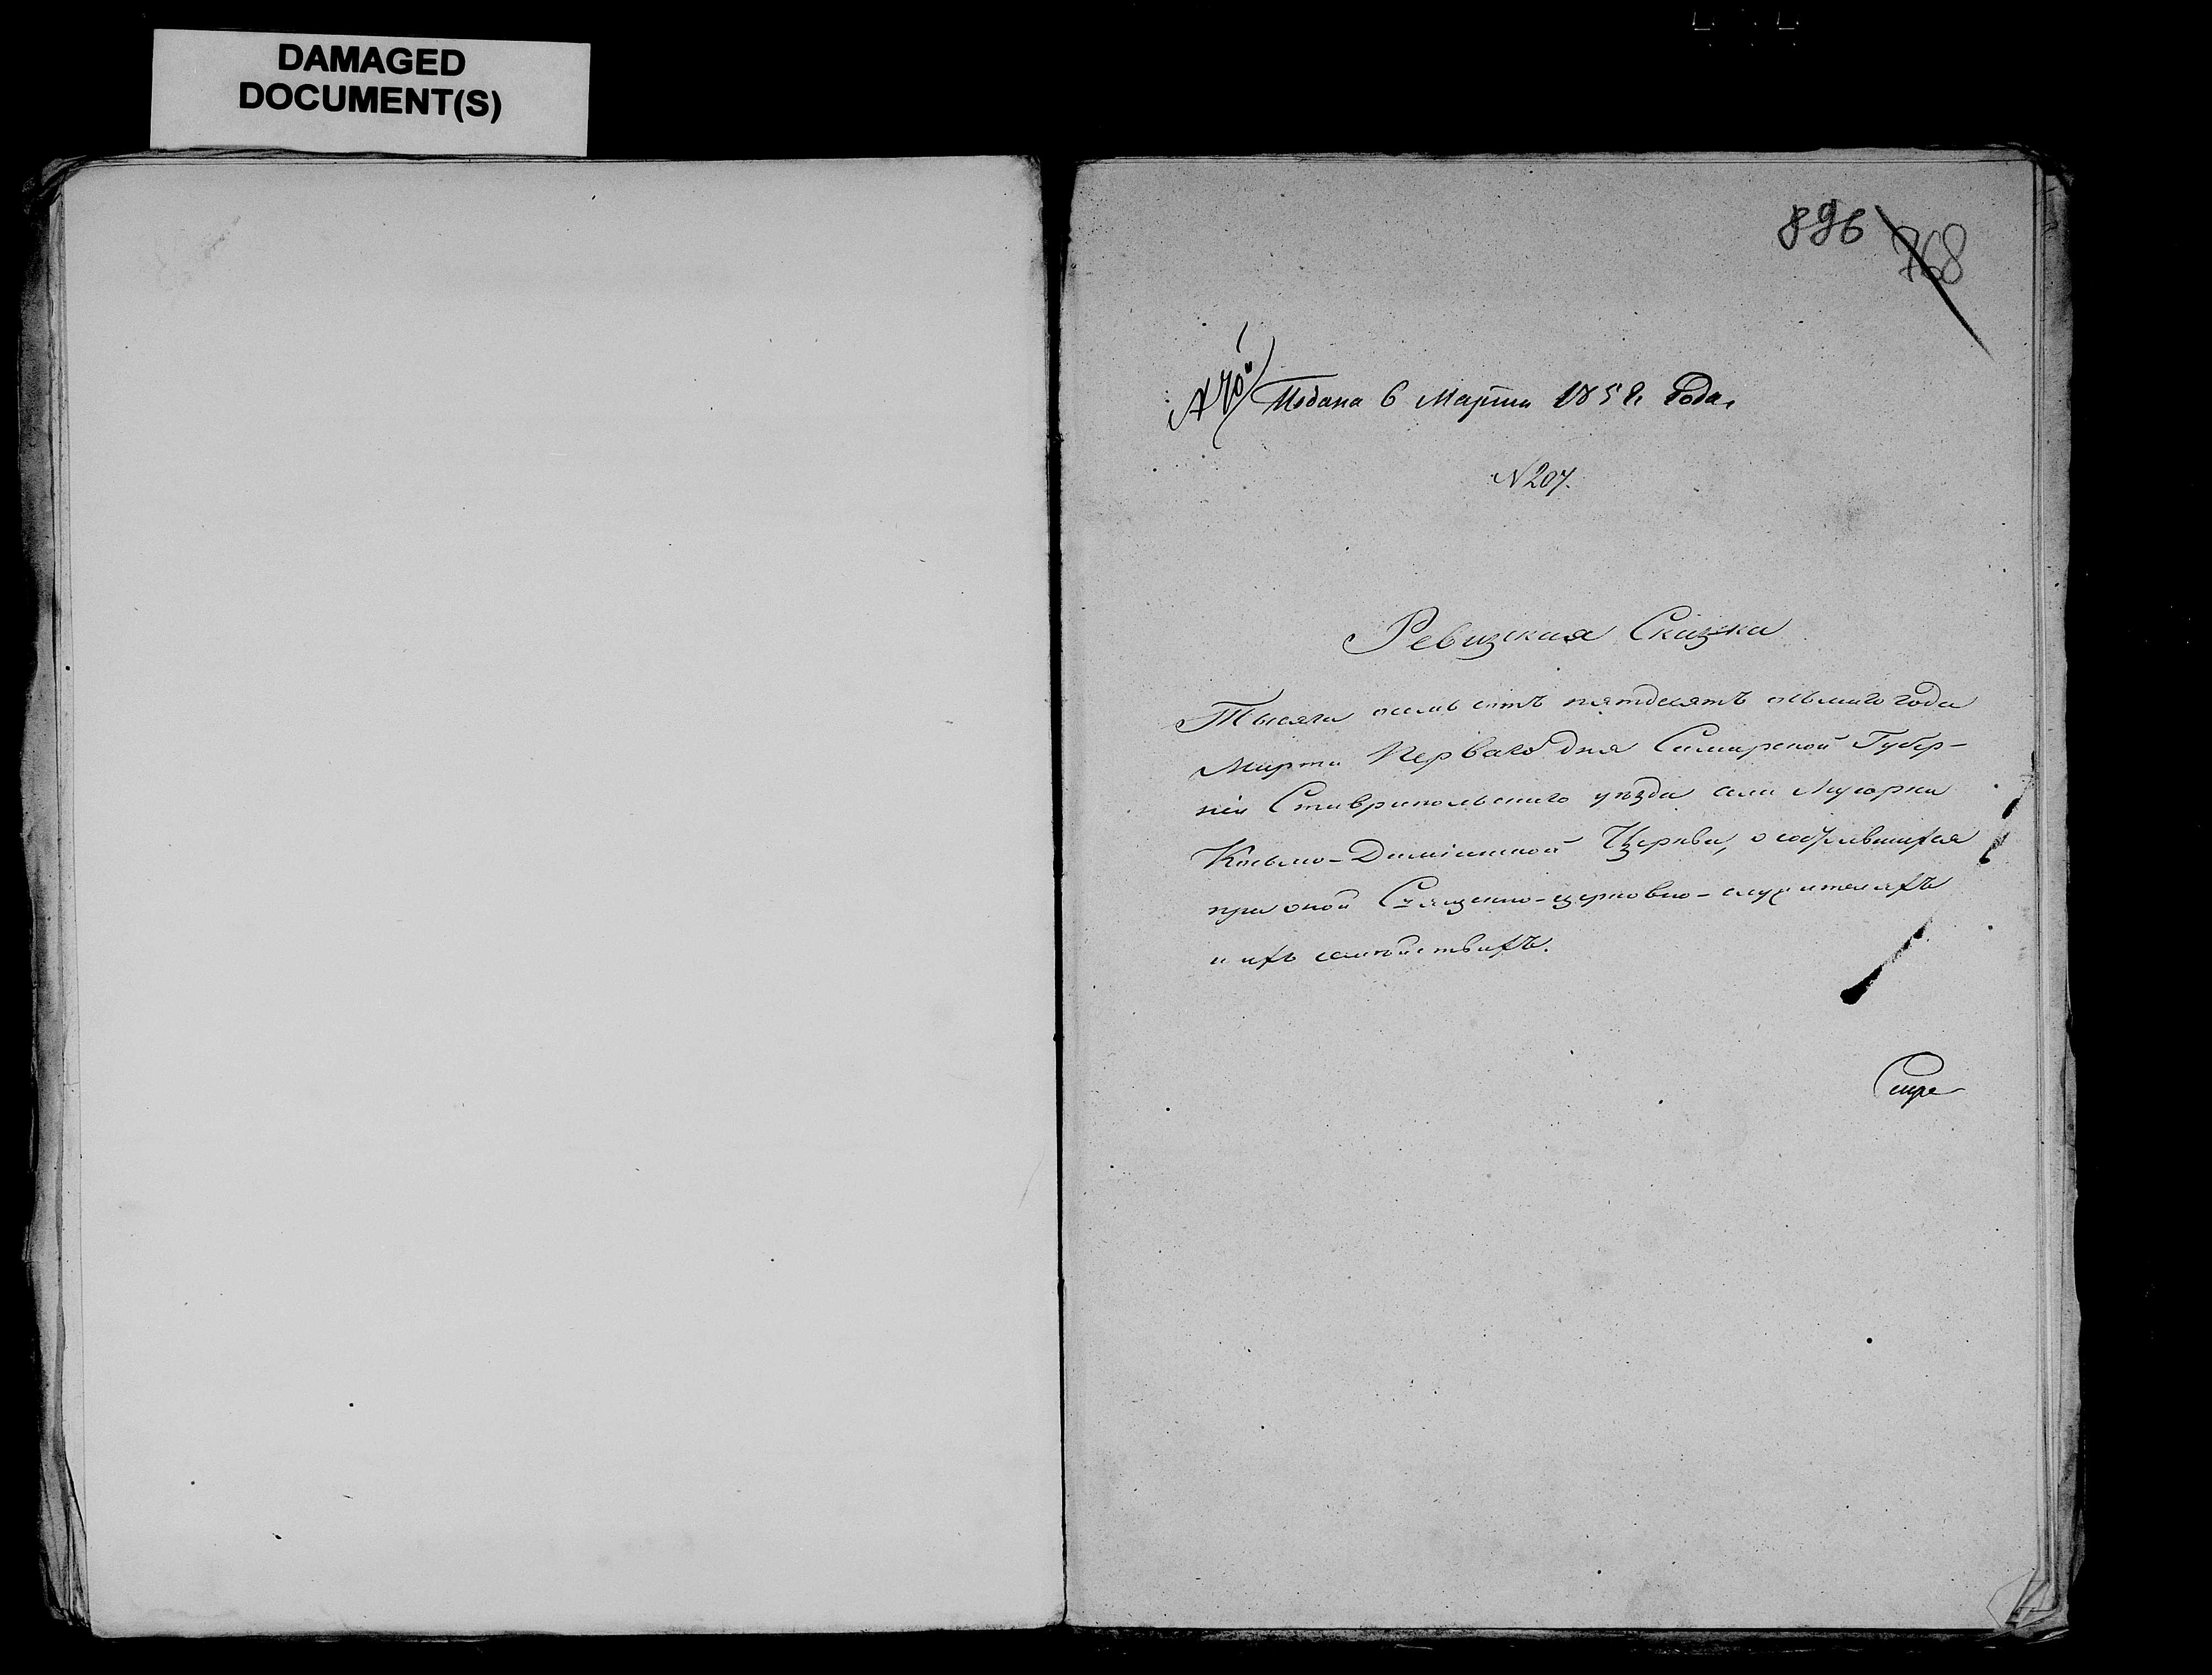 DAMAGED
DOCUMENT(S)
896 768
Подана 6 Марта 1858 Года.
N 207.
Ревизская Сказка
Тысяча осемь сотъ пятдесятъ осьмаго года
Марта Перваго дня Самарской Губер-
ніи Ставропольскаго уѣзда села Мусорки
Косьмо-Даміанской Церкви, о состоявшихся
при оной Священно-церковно-служителяхъ
и ихъ семѣйствахъ.